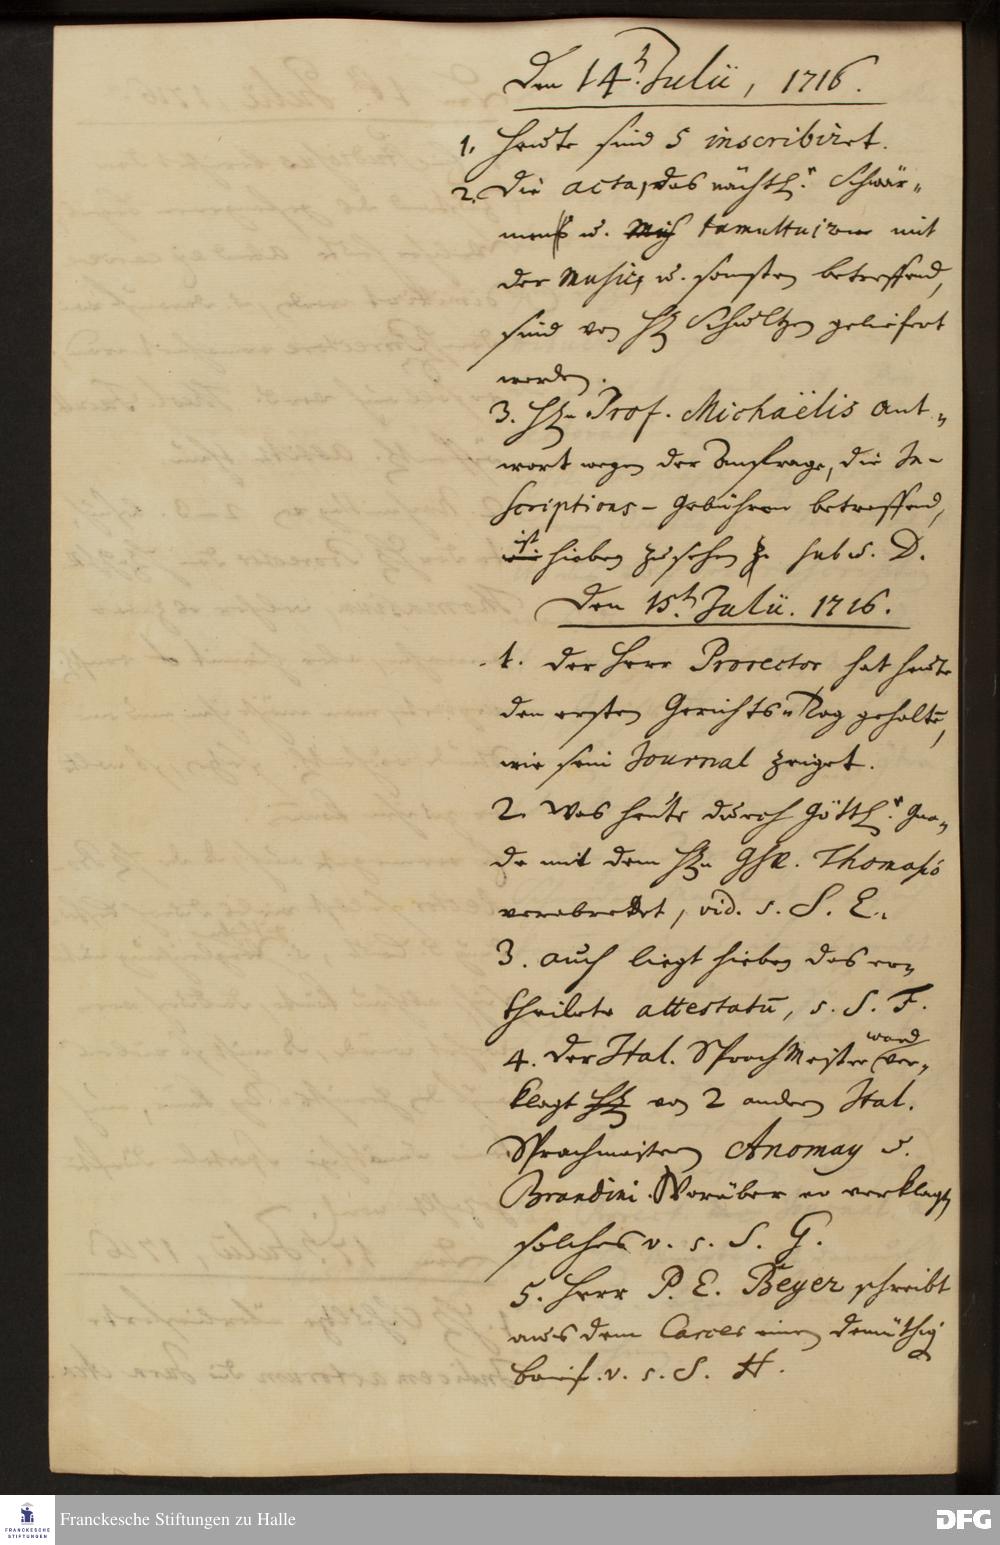 Den 14th. Julii, 1716.
1. Heute sind 5 inscribiret.
2. Die acta, das nächtl. Schwär-
men u. tumultuiren mit
der Music, u. sonsten betreffend,
sind von H. Schultzen geliefert
worden.
3. Hn. Prof. Michaëlis Ant-
wort wegen der Anfrage, die In-
scriptions-Gebühren betreffend,
ist hiebey zu sehen sub S. D.
Den 15th. Julii. 1716.
1. Der Herr Prorector hat heute
den ersten Gerichts-Tag gehalten,
wie sein Journal zeiget.
2. Was heute durch Göttl. Gna-
de mit dem Hn. Thomasio
verabredet, vid. s. S. E.
3. Auch liegt hiebey das er-
theilete attestatū, s. S. F.
4. Der Ital. Sprach Meister ward ver-
klagt von 2 andern Ital.
Sprachmeistern Anomay u.
Brandini. Worüber er verklagt,
solches v. s. S. G.
5. Herr P. E. Beyer schreibt
aus dem Carcer einen demüthigen
Brief. v. s. S. H.
Franckesche Stiftungen zu Halle
FRANCKESCHE
STIFTUNGEN
DFG